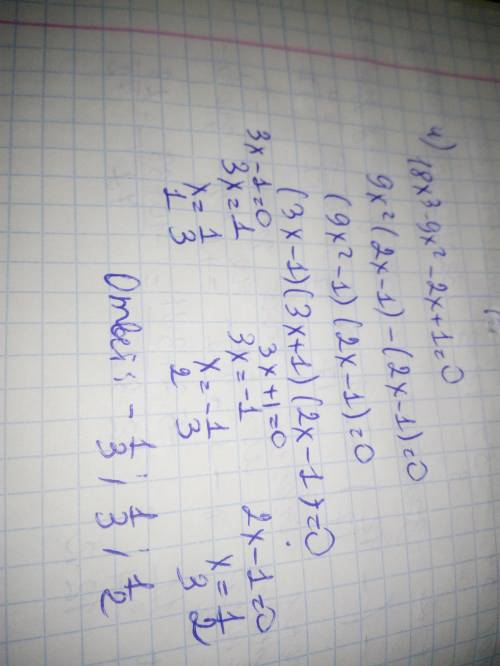 4) 18x³-9x²-2x+1=0
9x²(2x-1)-(2x-1)=0
(9x²-1)(2x-1)=0
(3x-1)(3x+1)(2x-1)=0
3x-1=0 3x+1=0 2x-1=0
3x=1 3x=-1
x₁=1/3 x₂=-1/3 x₃=1/2
Ответ: -1/3; 1/3; 1/2